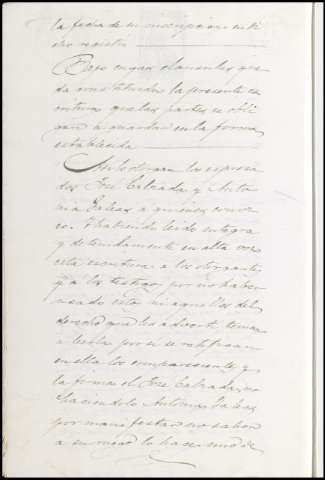 la fecha de su inscripcion en di
cho registro
Bajo cuyas clausulas que
da constituida la presente es
critura que las partes se obli
gan a guardar en la forma
establecida
Asi lo otorgan los expresa
dos José Calzada y Anto
nia Galeas a quienes conoz
co. Y habiendo leido integra
y detenidamente en alta voz
esta escritura a los otorgantes
y a los testigos por no haber
usado estos ni aquellos del
derecho que les adverti tienen
a leerla por si se ratifican
en ella los comparecientes y
la firma el José Calzada, no
haciendolo Antonia Galeas
por manifestar no saber
a su ruego lo hace uno de